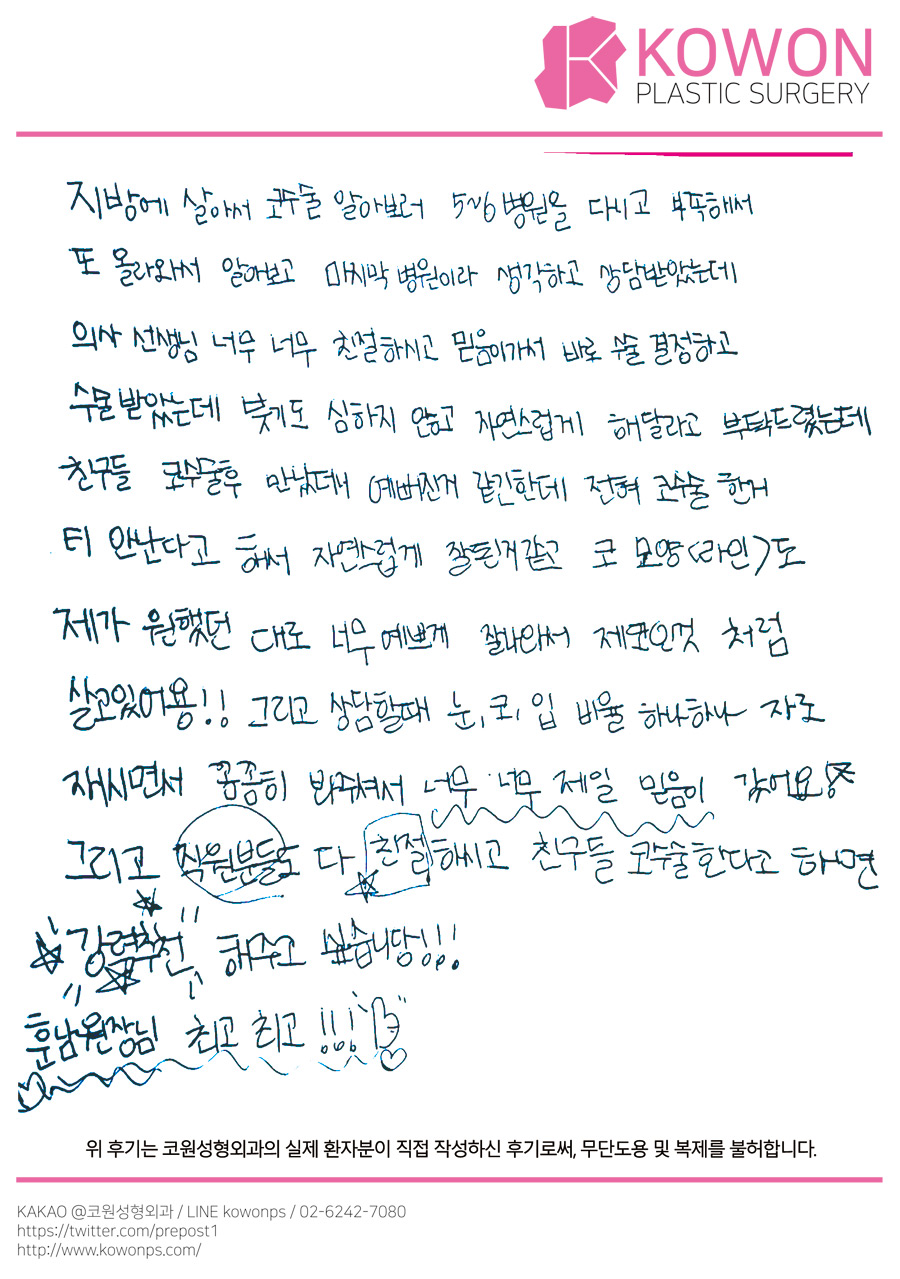 KOWON
PLASTIC SURGERY
지방에 살아서 코수술 알아보러 5~6병원을 다니고 부족해서
또 올라와서 알아보고 마지막 병원이라 생각하고 상담받았는데
의사 선생님 너무 너무 친절하시고 믿음이가서 바로 수술 결정하고
수술받았는데 붓기도 심하지 않고 자연스럽게 해달라고 부탁드렸는데
친구들 코수술후 만났더니 예뻐진거 같긴한데 전혀 코수술 한거
티 안난다고 해서 자연스럽게 잘된거같고 코 모양(라인)도
제가 원했던 대로 너무 예쁘게 잘나와서 제코인것 처럼
살고있어용!! 그리고 상담할때 눈, 코, 입 비율 하나하나 자로
재시면서 꼼꼼히 봐주셔서 너무 너무 제일 믿음이 갔어요
그리고 직원분들도 다 친절하시고 친구들 코수술한다고 하면
"강력추천" 해주고 싶습니당!!!
훈남원장님 최고 최고 !!!
위 후기는 코원성형외과의 실제 환자분이 직접 작성하신 후기로써, 무단도용 및 복제를 불허합니다.
KAKAO @코원성형외과 / LINE kowonps / 02-6242-7080
https://twitter.com/prepost1
http://www.kowonps.com/